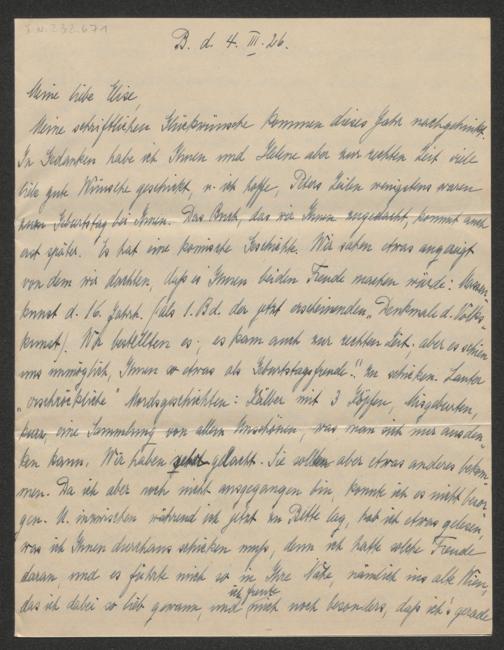 I.N. 232.671
B. d. 4. III. 26.
Meine liebe Elise,
Meine schriftlichen Glückwünsche kommen dieses Jahr nachgehinkt.
In Gedanken habe ich Ihnen und Helene aber zur rechten Zeit viele
liebe gute Wünsche geschickt, u. ich hoffe, Peters Zeilen wenigstens waren
zum Geburtstag bei Ihnen. Das Buch, das wir Ihnen zugedacht, kommt auch
erst später. Es hat eine komische Geschichte. Wir sahen etwas angezeigt
von dem wir dachten, daß es Ihnen beiden Freude machen würde:
kunst d. 16. Jahrh. (als 1. Bd. der jetzt erscheinenden „Denkmale d. Volks-
kunst). Wir bestellten es; es kam auch zur rechten Zeit; aber es schien
uns unmöglich, Ihnen so etwas als Geburtstagsfreude!! zu schicken. Lauter
„erschröckliche" Mordsgeschichten: Kälber mit 3 Köpfen, Misgeburten,
kurz, eine Sammlung von allem Unschönen, was man sich nur ausden-
ken kann. Wir haben gelacht. Sie sollten aber etwas anderes bekom-
men. Da ich aber noch nicht ausgegangen bin, konnte ich es nicht besor-
gen. U. inzwischen während ich jetzt zu Bette lag, hab ich etwas gelesen,
was ich Ihnen durchaus schicken muß, denn ich hatte solche Freude
daran, und es führte mich so in Ihre Nähe, nämlich ins alte Wien,
das ich dabei so lieb gewann, und ich freute mich noch besonders, daß ich's gerade